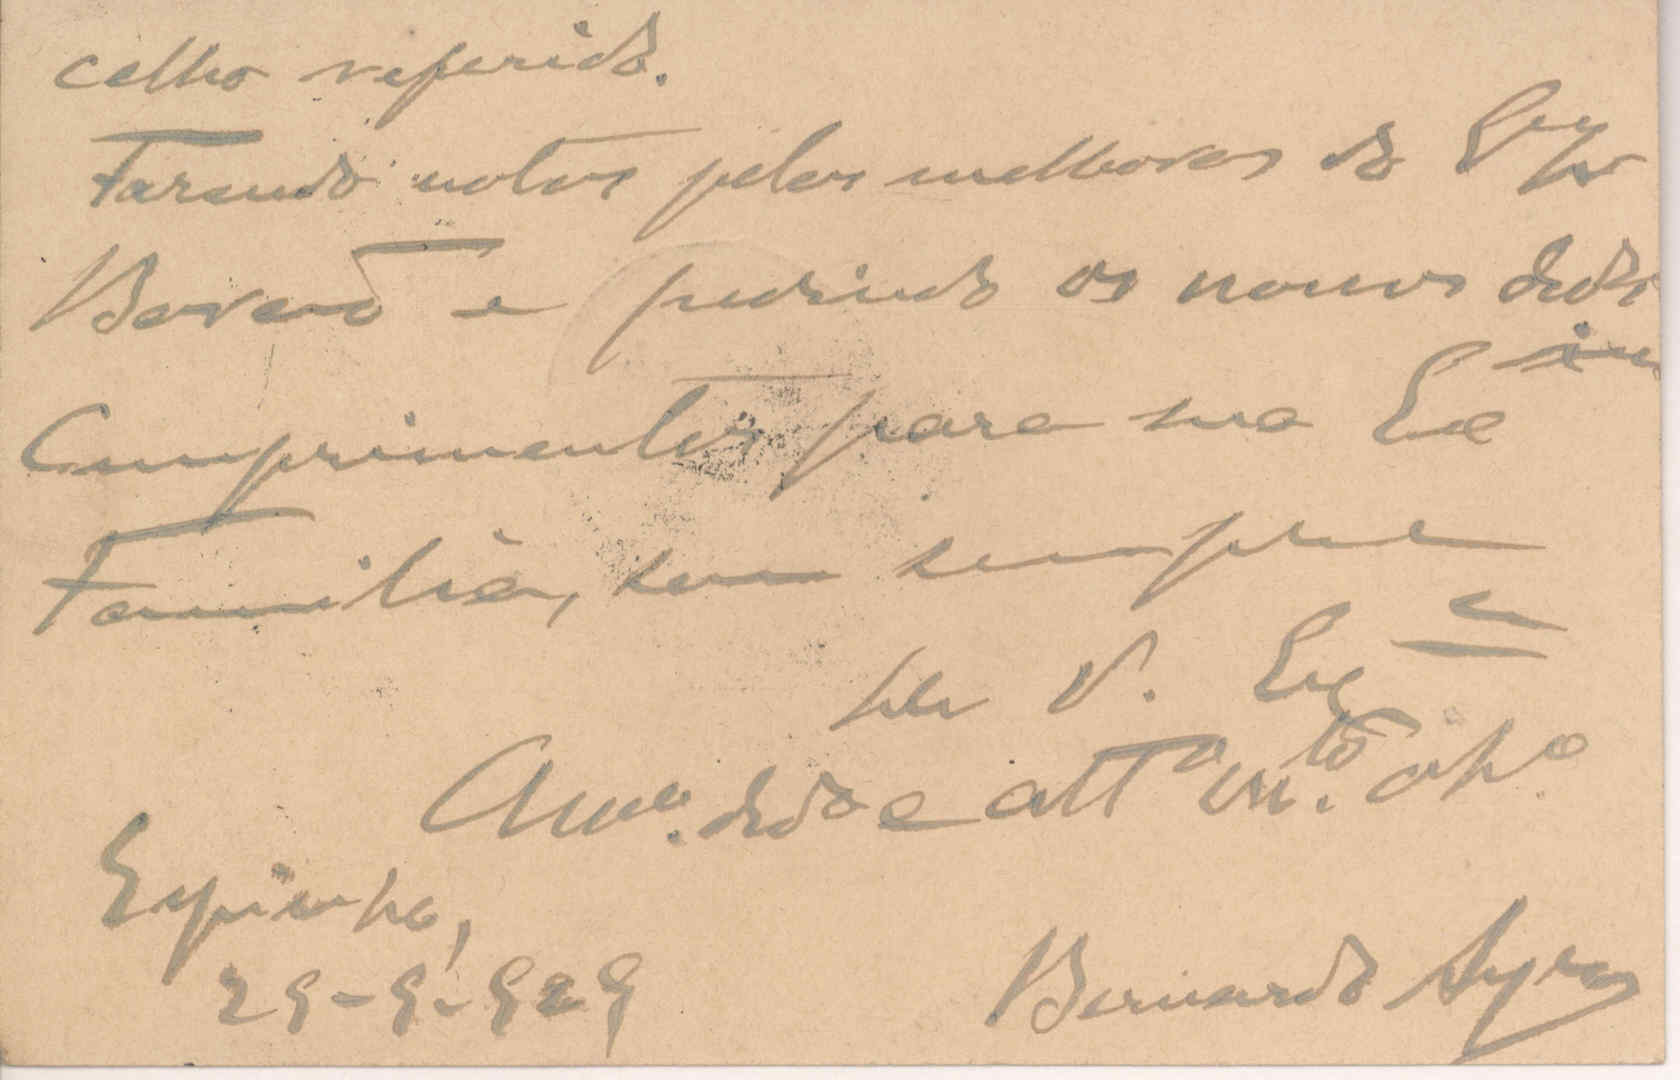 celho referido.
Fazendo votos pelas melhoras do Exmo
Barão e pedindo os nossos
Cumprimentos para sua Exma
Familia, sou sempre
de V. Exa
Amo. dedo e atto mto. obo.
Espinho,
29-9-929
Bernardo Ayres